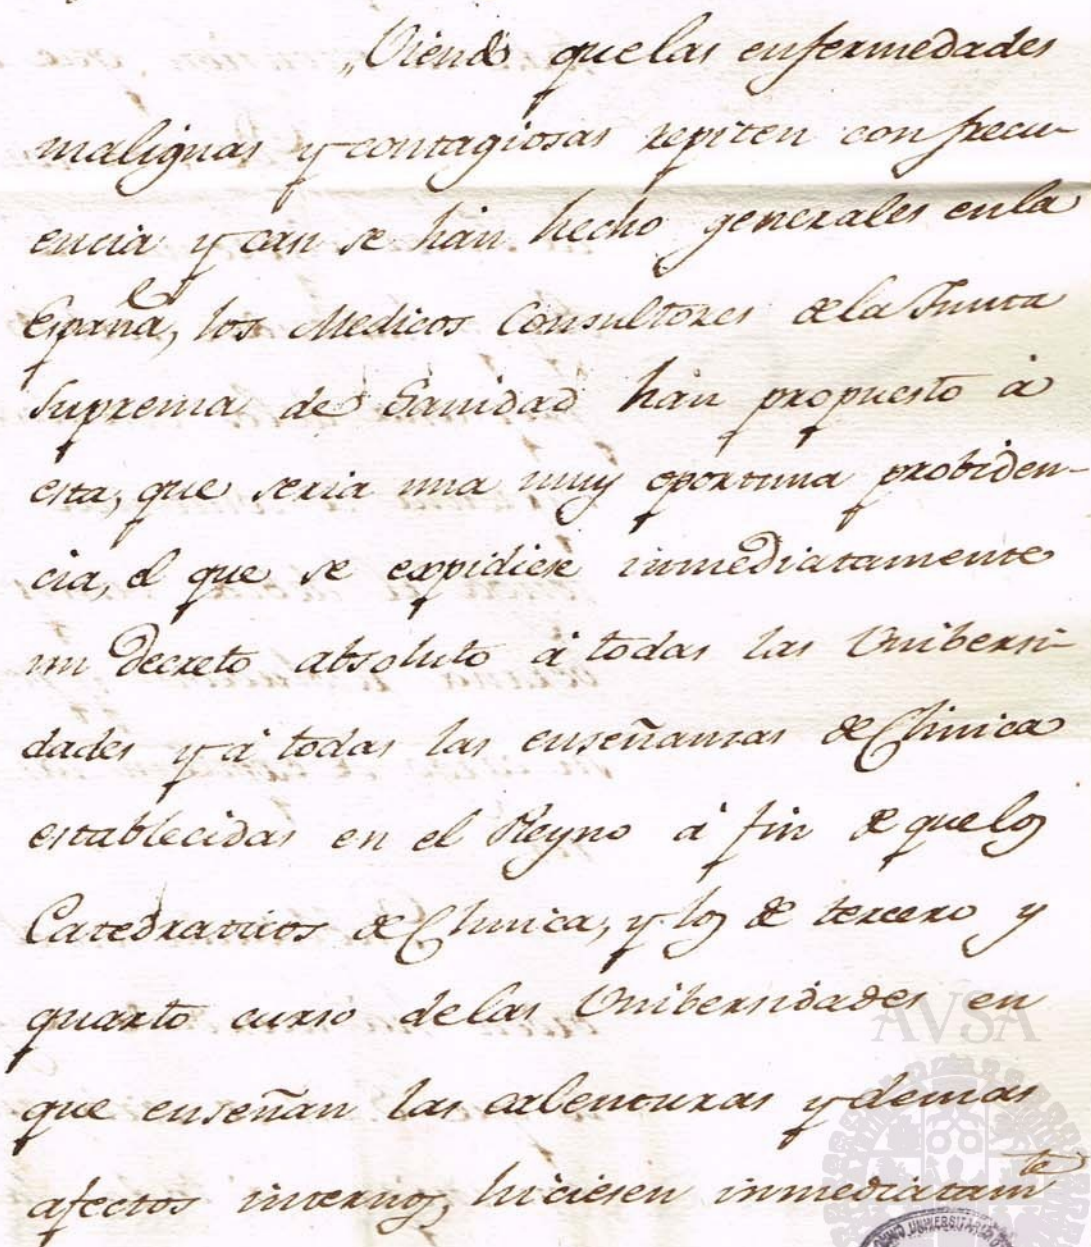 „Viendo que las enfermedades
malignas y contagiosas repiten con frecu-
encia y casi se hán hecho generales en la
España, los Medicos Consultores de la Junta
Suprema de Sanidad hán propuesto á
esta, que seria una muy oportuna probiden-
cia, el que se expidiese inmediatamente
un Decreto absoluto á todas las Unibersi-
dades y á todas las enseñanzas de Clinica
establecidas en el Reyno á fin de que los
Catedraticos de Clinica, y los de tercero y
quarto curso de las Unibersidades en
que enseñan las calenturas y demas
afectos internos, hiciesen inmediatam.te
AVSA